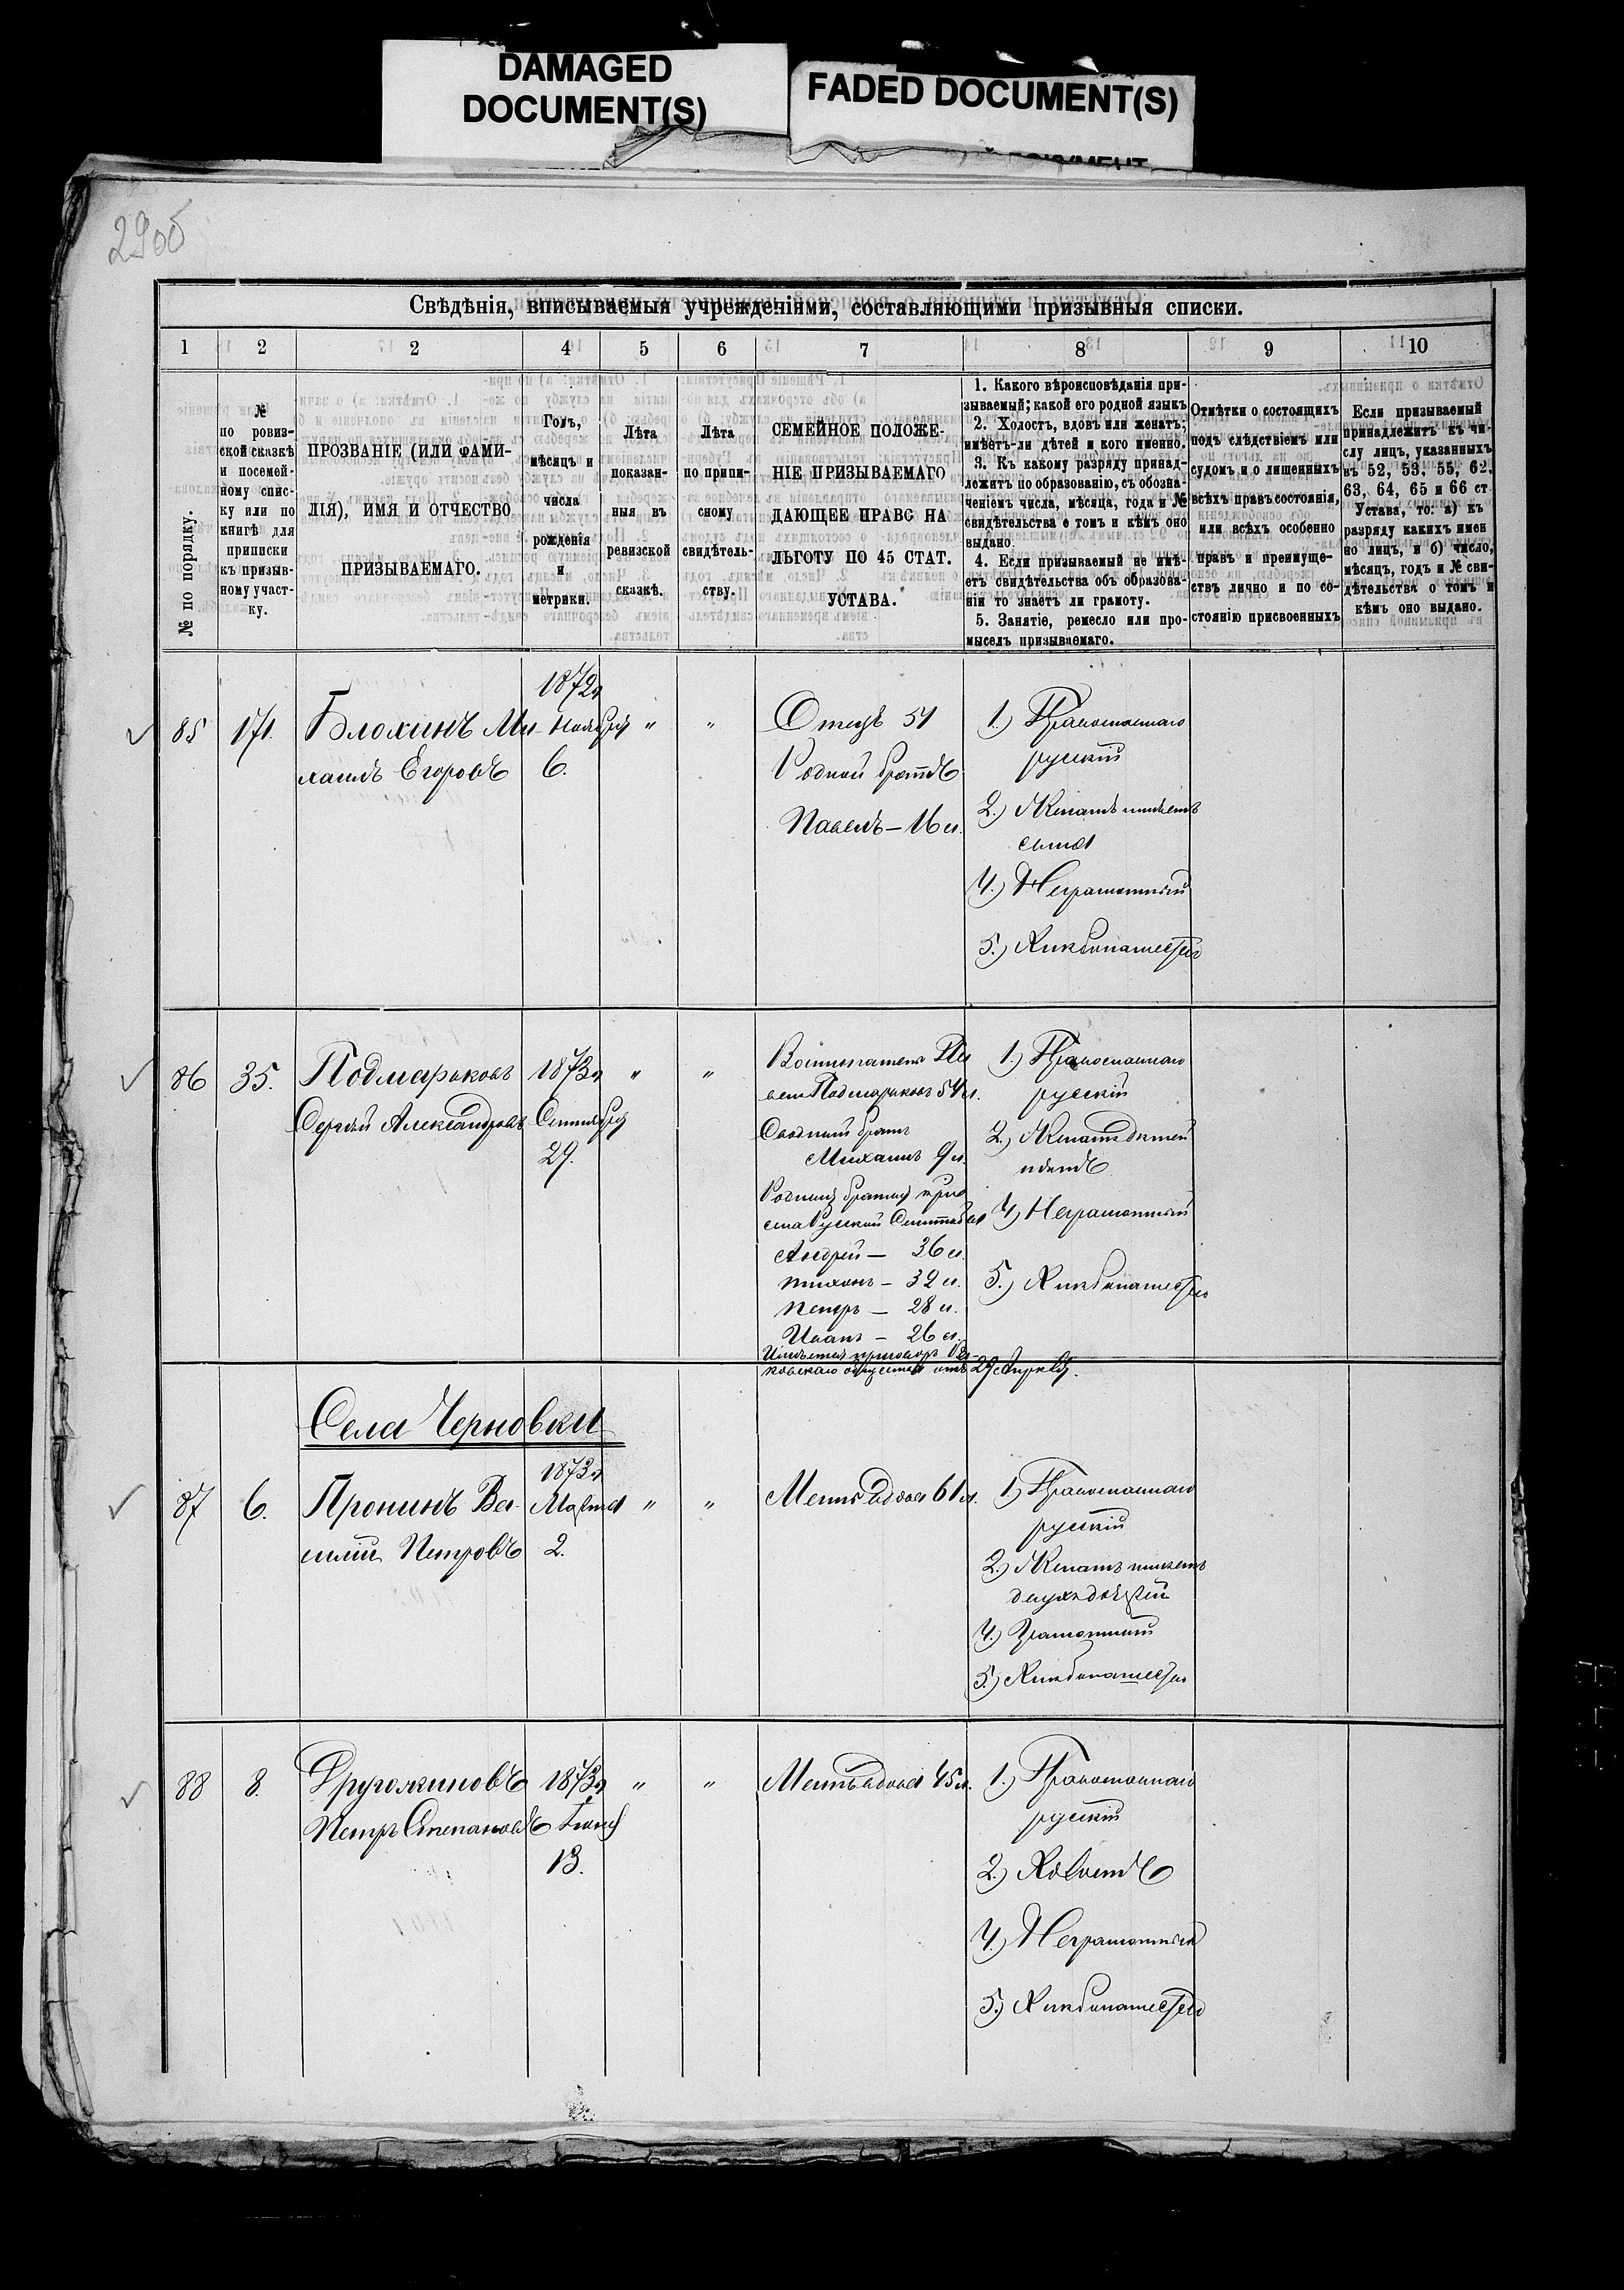 DAMAGED
DOCUMENT(S)
FADED DOCUMENT(S)
290б
Свѣдѣнія, вписываемыя учрежденіями, составляющими призывныя списки.
1 2 2 4 5 6 7 8 9 10
№ по порядку.
№
по ревиз-
ской сказкѣ
и посемей-
ному спис-
ку или по
книгѣ для
приписки
къ призыв-
ному участ-
ку.
ПРОЗВАНІЕ (ИЛИ ФАМИ-
ЛІЯ), ИМЯ И ОТЧЕСТВО
ПРИЗЫВАЕМАГО.
Годъ,
мѣсяцъ и
числа
рожденія
и
метрики.
Лѣта
показан-
ныя въ
ревизской
сказкѣ.
Лѣта
по припи-
сному
свидѣтель-
ству.
СЕМЕЙНОЕ ПОЛОЖЕ-
НІЕ ПРИЗЫВАЕМАГО
ДАЮЩЕЕ ПРАВО НА
ЛЬГОТУ ПО 45 СТАТ.
УСТАВА.
1. Какого вѣроисповѣданія при-
зываемый; какой его родной языкъ
2. Холостъ, вдовъ или женатъ;
имѣетъ-ли дѣтей и кого именно.
3. Къ какому разряду принад-
лежитъ по образованію, съ обозна-
ченіемъ числа, мѣсяца, года и №
свидѣтельства о томъ и кѣмъ оно
выдано.
4. Если призываемый не имѣ-
етъ свидѣтельства объ образова-
ніи то знаетъ ли грамоту.
5. Занятіе, ремесло или про-
мыселъ призываемаго.
Отмѣтки о состоящихъ
подъ слѣдствіемъ или
судомъ и о лишенныхъ
всѣхъ правъ состоянія,
или всѣхъ особенно
правъ и преимуще-
ствъ лично и по со-
стоянію присвоенныхъ
Если призываемый
принадлежитъ къ чи-
слу лицъ, указанныхъ
въ 52, 53, 55, 62.
63, 64, 65 и 66 ст
Устава, то: а) къ
разряду какихъ имен
но лицъ, и б) число,
мѣсяцъ, годъ и № сви-
дѣтельства о томъ и
кѣмъ оно выдано.
85 171. Блохинъ Ми-
хаилъ Егоровъ
1872 г.
Ноября
6.
" "
Отецъ 51
Родной братъ
Павелъ — 16 л.
1.) Православнаго
русскій
2.) Женатъ имѣетъ
сына
4.) Неграмотный
5.) Хлѣбопашество
86 35. Подмарьковъ
Сергѣй Александровъ
1873 г.
Сентября
29.
" "
Воспитатель
Подмарьковъ 54 л.
Сводный братъ
Михаилъ 9 л.
Родныя братья
Андрей — 36 л.
Тихонъ — 32 л.
Петръ — 28 л.
Иванъ — 26 л.
Имѣется приговоръ
общества отъ 29 Апрѣля.
1.) Православнаго
русскій
2.) Женатъ дѣтей
нѣтъ
4.) Неграмотный
5.) Хлѣбопашество
Села Черновки
87 6. Пронинъ Ва-
силій Петровъ
1873 г.
Марта
2.
" "
Мать вдова 61 л.
1.) Православнаго
русскій
2.) Женатъ имѣетъ
двухъ дочерей
4.) Грамотный
5.) Хлѣбопашество
88 8. Дружкиновъ
Петръ Степановъ
1873 г.
Іюня
13.
" "
Мать вдова 45 л.
1.) Православнаго
русскій
2.) Холостъ
4.) Неграмотный
5.) Хлѣбопашество